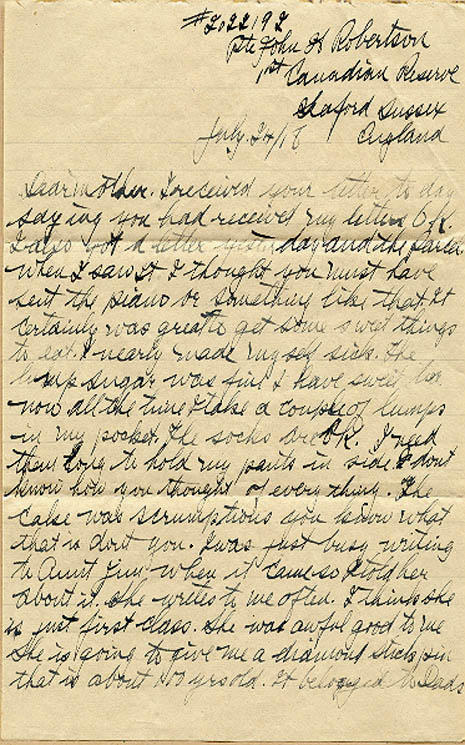 #2022192
Pte John H Robertson
1st Canadian Reserve
Seaford Sussex
England
July. 24/18
Dear mother. I received your letter to day
saying you had received my letters O.K.
I also got a letter yesterday and the parcel
when I saw it I thought you must have
sent the piano or something like that It
certainly was great to get some sweet things
to eat. I nearly made myself sick. The
lump sugar was fine I have sweet tea
now all the time I take a couple of lumps
in my pocket. The socks are O.K. I need
them long to hold my pants in side I dont
know how you thought of every thing. The
cake was scrumptious you know what
that is dont you. I was just busy writing
to Aunt when it came so I told her
about it. She writes to me often. I think she
is just first class. She was awful good to me
She is going to give me a diamond stick pin
that is about 100 yrs old. It belonged to Dads